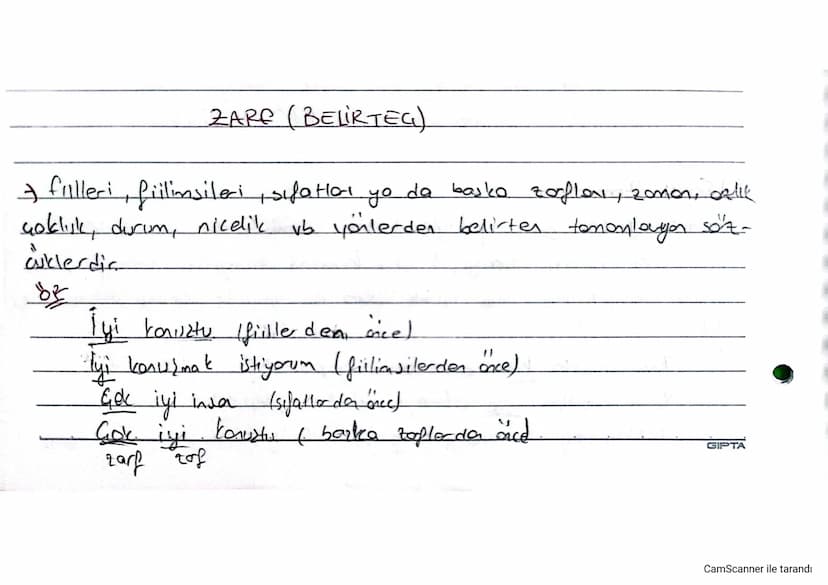 ZARF (BELİRTEÇ)
→ fiilleri, fiilimsileri, sıfatları ya da başka zarfları, zaman, azlık
çokluk, durum, nicelik vb yönlerden belirten tamamlayan söz-
cüklerdir.
ÖR
İyi konuştu (fiillerden önce)
İyi konuşmak istiyorum (fiilimsilerden önce)
Çok iyi insan (sıfatlardan önce)
Çok iyi konuştu ( başka zarflardan önce)
zarf zarf
GIPTA
CamScanner ile tarandı